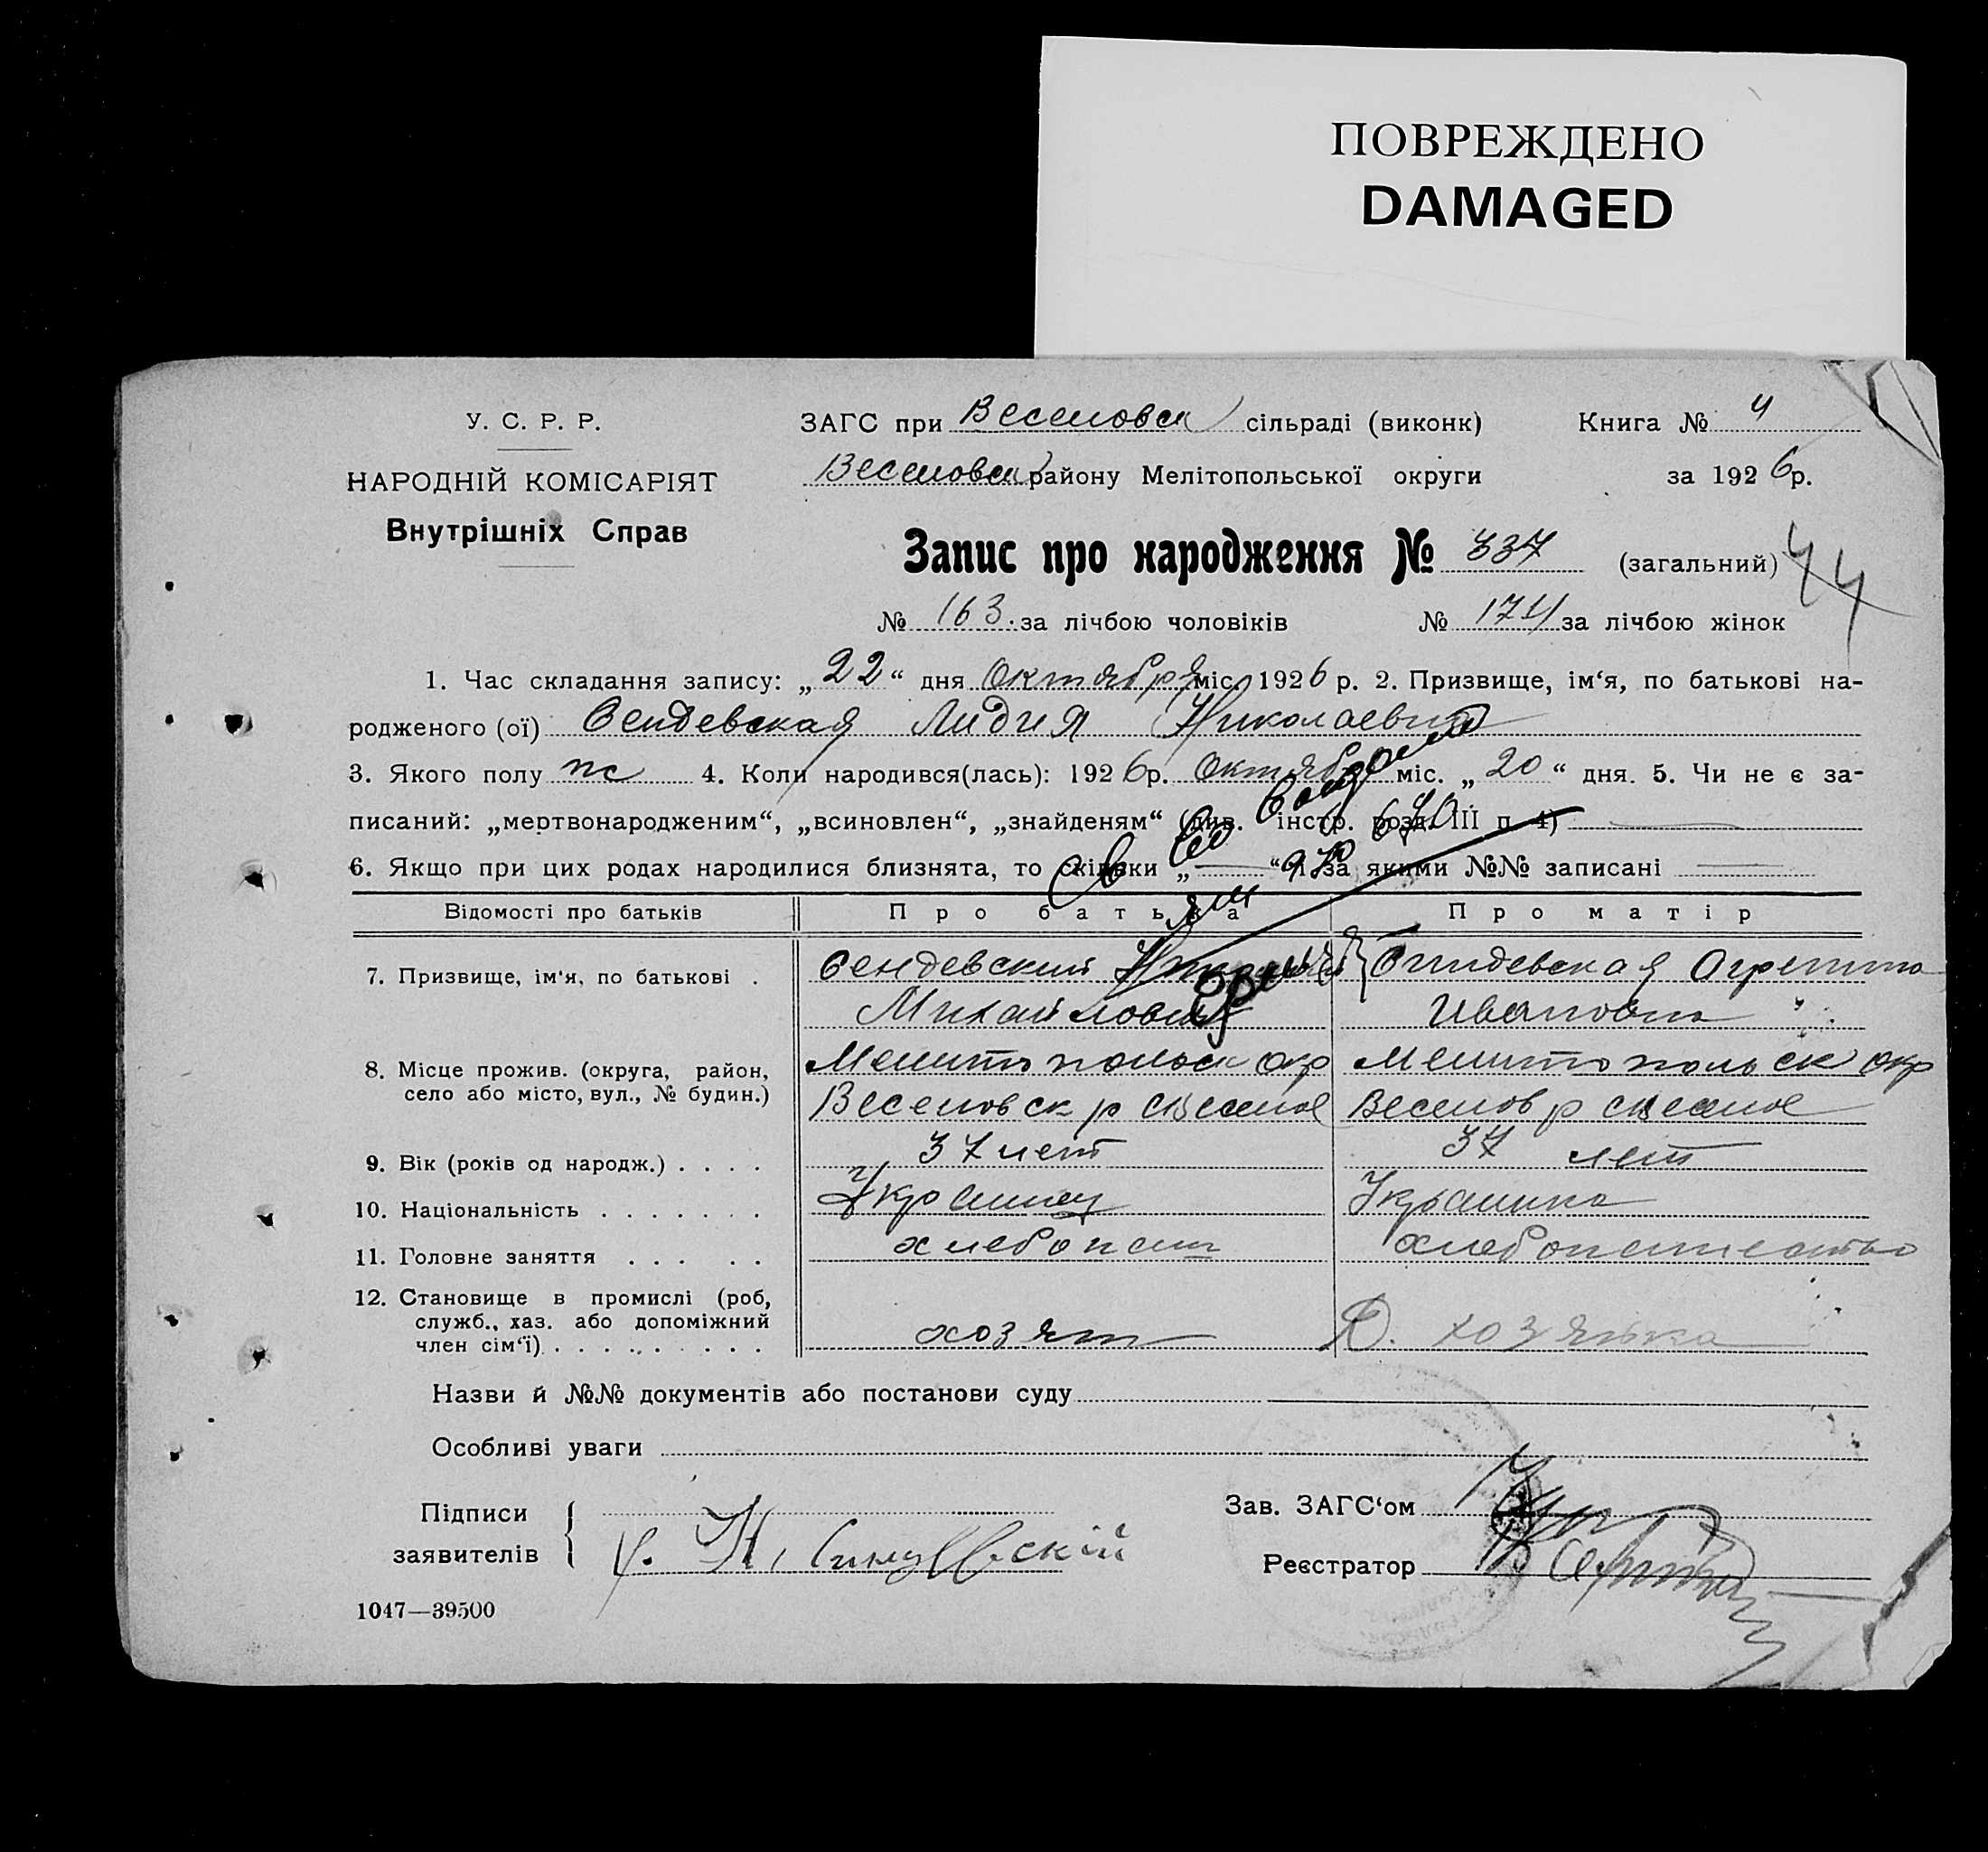 ПОВРЕЖДЕНО
DAMAGED
У. С. Р. Р.
НАРОДНІЙ КОМІСАРІЯТ
Внутрішніх Справ
ЗАГС при Веселовск сільраді (виконк) Книга № 4
Веселовск району Мелітопольської округи за 1926 р.
Запис про народження № 337 (загальний)
44
№ 163. за лічбою чоловіків № 174 за лічбою жінок
1. Час складання запису: „22“ дня Октября міс. 1926 р. 2. Призвище, ім‘я, по батькові на-
родженого (ої) Сендевская Лидия Николаевна
3. Якого полу жс 4. Коли народився(лась): 1926 р. Октября міс. „20“ дня. 5. Чи не є за-
писаний: „мертвонародженим“, „всиновлен“, „знайденям“ (див. інстр. розд. III п. 4)
6. Якщо при цих родах народилися близнята, то скільки „ “ і за якими №№ записані
Відомості про батьків Про батька Про матір
7. Призвище, ім‘я, по батькові . Сендевский Николай Сендевская
Михайлович Ивановна
8. Місце прожив. (округа, район, село або місто, вул., № будин.) Мелитопольск окр Мелитопольск окр
Веселовск р Веселов р
9. Вік (років од народж.) . . . . 37 лет 37 лет
10. Національність . . . . . . . Украинец Украинка
11. Головне заняття . . . . . хлебопаш
12. Становище в промислі (роб,
служб., хаз. або допоміжний
член сім‘ї) . . . . . . . . . хозяин Д. хозяйка
Назви й №№ документів або постанови суду
Особливі уваги
Підписи
заявителів
Зав. ЗАГС‘ом
Реєстратор
1047—39500